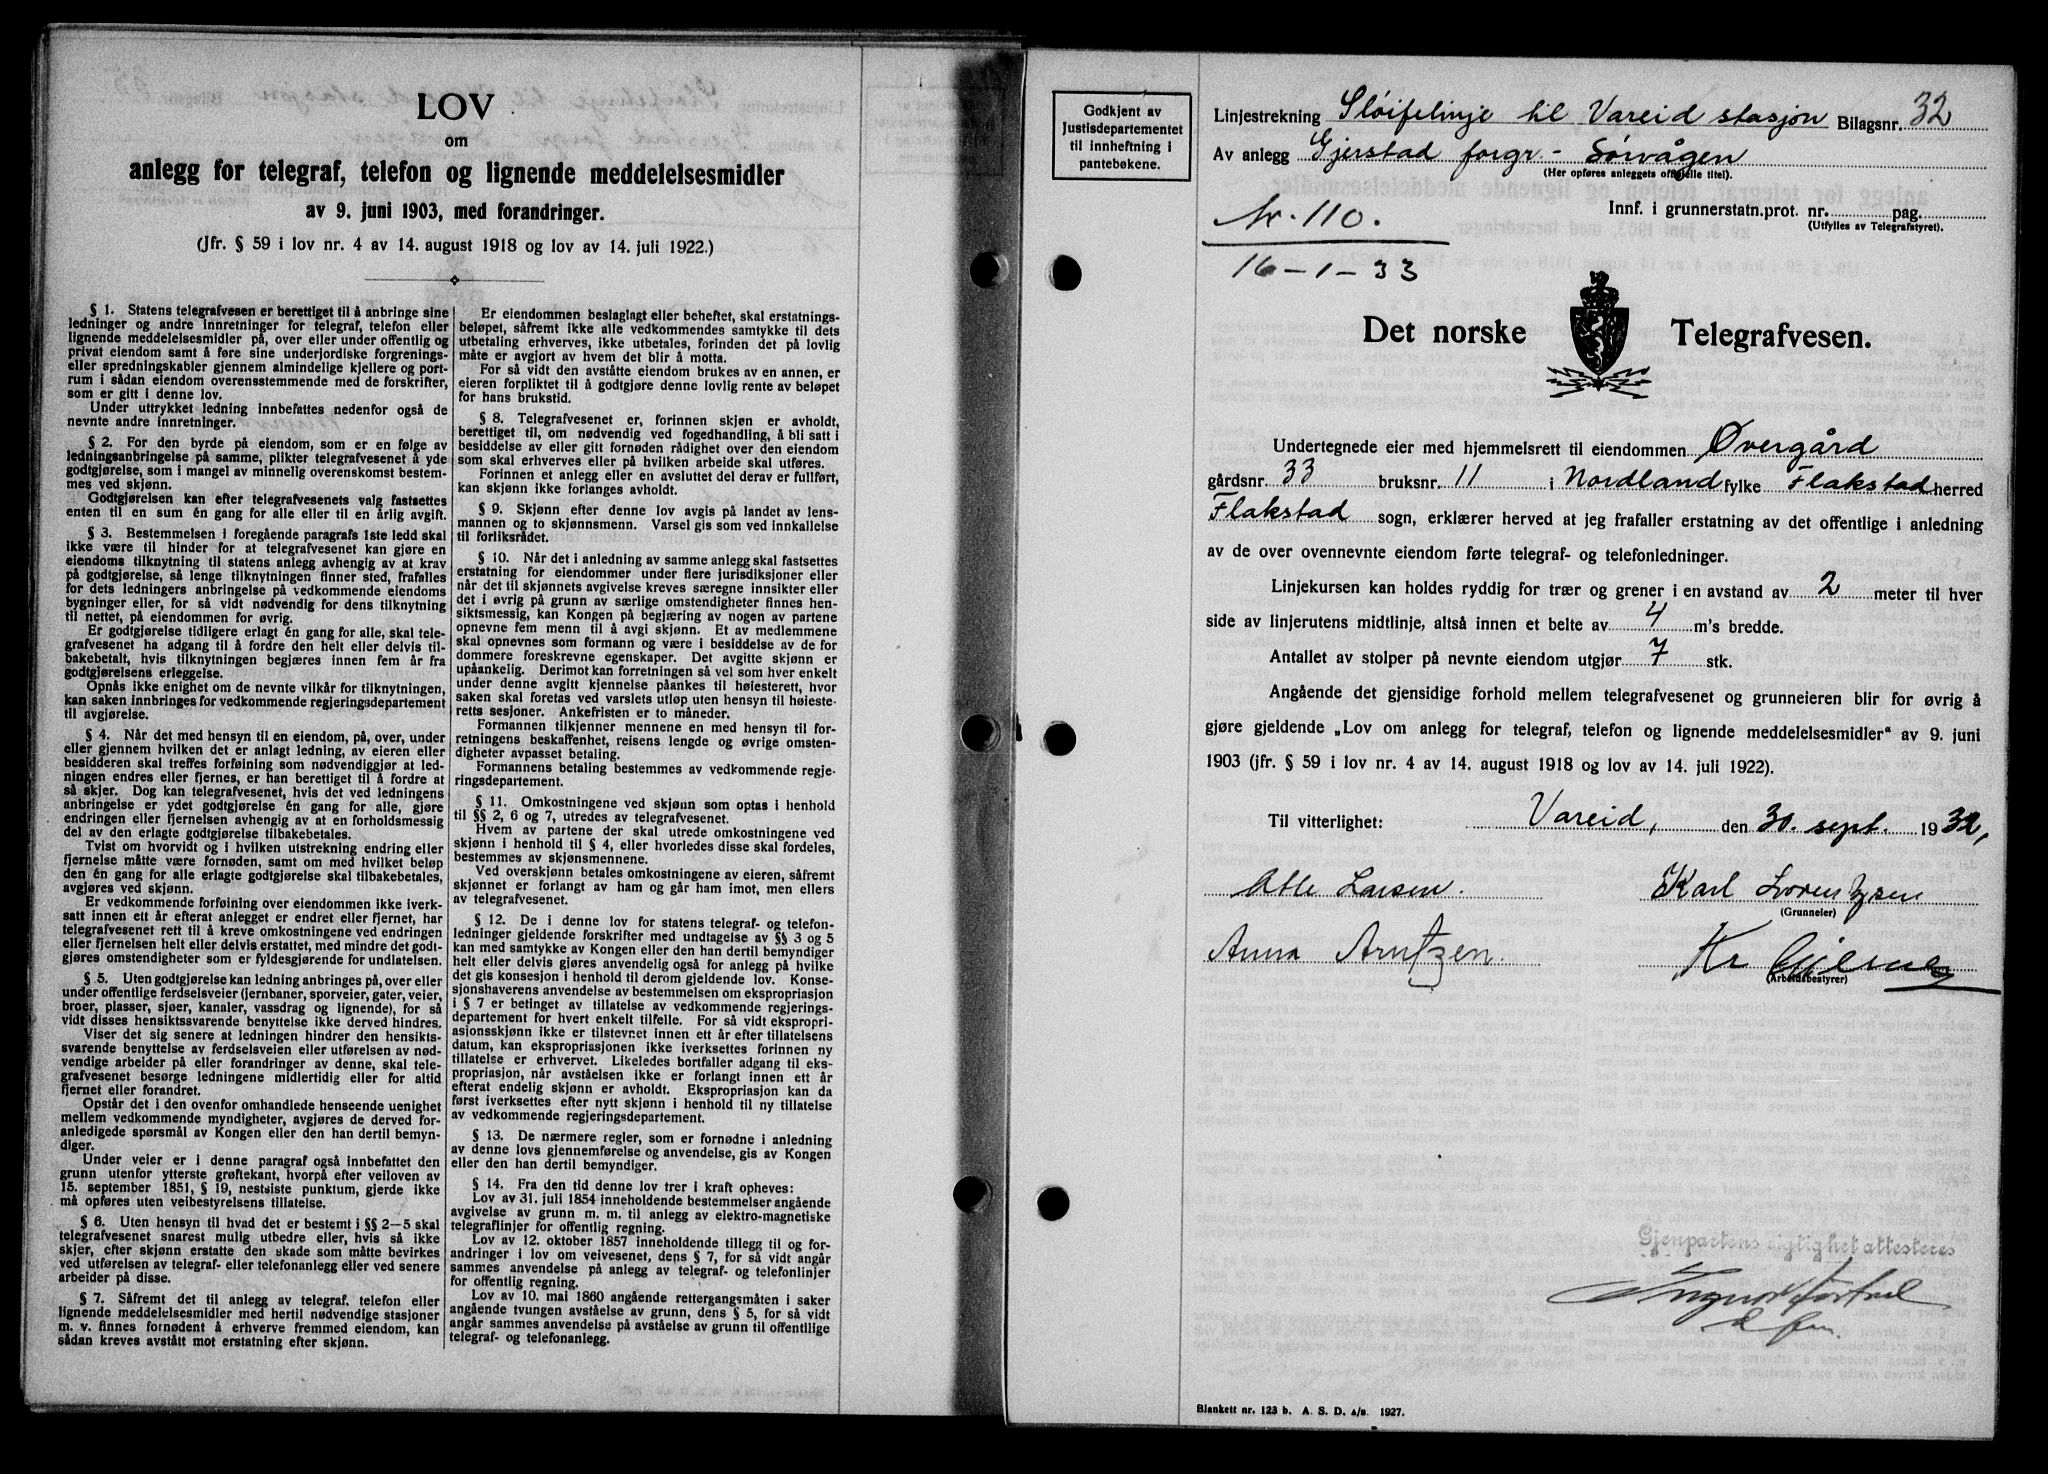 LOV
om
anlegg for telegraf, telefon og lignende meddelelsesmidler
av 9. juni 1903, med forandringer.
(Jfr. § 59 i lov nr. 4 av 14. august 1918 og lov av 14. juli 1922.)
§ 1. Statens telegrafvesen er berettiget til å anbringe sine
ledninger og andre innretninger for telegraf, telefon eller
lignende meddelelsesmidler på, over eller under offentlig og
privat eiendom samt å føre sine underjordiske forgrenings-
eller spredningskabler gjennem almindelige kjellere og port-
rum i sådan eiendom overensstemmende med de forskrifter,
som er gitt i denne lov.
Under uttrykket ledning innbefattes nedenfor også de
nevnte andre innretninger.
§ 2. For den byrde på eiendom, som er en følge av
ledningsanbringelse på samme, plikter telegrafvesenet å yde
godtgjørelse, som i mangel av minnelig overenskomst bestem-
mes ved skjønn.
Godtgjørelsen kan efter telegrafvesenets valg fastsettes
enten til en sum én gang for alle eller til en årlig avgift.
§ 3. Bestemmelsen i foregående paragrafs 1ste ledd skal
ikke være til hinder for at telegrafvesenet kan gjøre en
eiendoms tilknytning til statens anlegg avhengig av at krav
på godtgjørelse, så lenge tilknytningen finner sted, frafalles
for dets ledningers anbringelse på vedkommende eiendoms
bygninger eller, for så vidt nødvendig for dens tilknytning
til nettet, på eiendommen for øvrig.
Er godtgjørelse tidligere erlagt én gang for alle, skal tele-
grafvesenet ha adgang til å fordre den helt eller delvis til-
bakebetalt, hvis tilknytningen begjæres innen fem år fra
godtgjørelsens erleggelse.
Opnås ikke enighet om de nevnte vilkår for tilknytningen,
kan saken innbringes for vedkommende regjeringsdepartement
til avgjørelse.
§ 4. Når det med hensyn til en eiendom, på, over, under
eller gjennem hvilken det er anlagt ledning, av eieren eller
besidderen skal treffes forføining som nødvendiggjør at led-
ningen endres eller fjernes, er han berettiget til å fordre at
så skjer. Dog kan telegrafvesenet, hvis det ved ledningens
anbringelse er ydet godtgjørelse én gang for alle, gjøre
endringen eller fjernelsen avhengig av at en forholdsmessig
del av den erlagte godtgjørelse tilbakebetales.
Tvist om hvorvidt og i hvilken utstrekning endring eller
fjernelse måtte være fornøden, samt om med hvilket beløp
den én gang for alle erlagte godtgjørelse skal tilbakebetales,
avgjøres ved skjønn.
Er vedkommende forføining over eiendommen ikke iverk-
satt innen ett år efterat anlegget er endret eller fjernet, har
telegrafvesenet rett til å kreve omkostningene ved endringen
eller fjernelsen helt eller delvis erstattet, med mindre det godt-
gjøres omstendigheter som er fyldesgjørende for undlatelsen.
§ 5. Uten godtgjørelse kan ledning anbringes på, over eller
under offentlige ferdselsveier (jernbaner, sporveier, gater, veier,
broer, plasser, sjøer, kanaler, vassdrag og lignende), for så
vidt disses hensiktssvarende benyttelse ikke derved hindres.
Viser det sig senere at ledningen hindrer den hensikts-
svarende benyttelse av ferdselsveien eller utførelsen av nød-
vendige arbeider på eller forandringer av denne, skal tele-
grafvesenet besørge ledningene midlertidig eller for altid
fjernet eller forandret.
Opstår det i den ovenfor omhandlede henseende uenighet
mellem vedkommende myndigheter, avgjøres de derved for-
anledigede spørsmål av Kongen eller den han dertil bemyn-
diger.
Under veier er i denne paragraf også innbefattet den
grunn utenfor ytterste grøftekant, hvorpå efter veiloven av
15. september 1851, § 19, nestsiste punktum, gjerde ikke
må opføres uten veibestyrelsens tillatelse.
§ 6. Uten hensyn til hvad det er bestemt i §§ 2—5 skal
telegrafvesenet snarest mulig utbedre eller, hvis så ikke
skjer, efter skjønn erstatte den skade som måtte bevirkes
ved utførelsen av telegraf- eller telefonanlegg eller ved senere
arbeider på disse.
§ 7. Såfremt det til anlegg av telegraf, telefon eller
lignende meddelelsesmidler med hertil nødvendige stasjoner
m. v. finnes fornødent å erhverve fremmed eiendom, kan
sådan kreves avstått mot erstatning efter skjønn.
Er eiendommen beslaglagt eller beheftet, skal erstatnings-
beløpet, såfremt ikke alle vedkommendes samtykke til dets
utbetaling erhverves, ikke utbetales, forinden det på lovlig
måte er avgjort av hvem det blir å motta.
For så vidt den avståtte eiendom brukes av en annen, er
eieren forpliktet til å godtgjøre denne lovlig rente av beløpet
for hans brukstid.
§ 8. Telegrafvesenet er, forinnen skjøn er avholdt,
berettiget til, om nødvendig ved fogedhandling, å bli satt i
besiddelse av eller gitt fornøden rådighet over den eiendom
som skal erhverves eller på hvilken arbeide skal utføres.
Forinnen et anlegg eller en avsluttet del derav er fullført,
kan skjønn ikke forlanges avholdt.
§ 9. Skjønn efter denne lov avgis på landet av lens-
mannen og to skjønnsmenn. Varsel gis som ved innkallelse
til forliksrådet.
§ 10. Når det i anledning av samme anlegg skal fastsettes
erstatning for eiendommer under flere jurisdiksjoner eller
når det til skjønnets avgivelse kreves særegne innsikter eller
det i øvrig på grunn av særlige omstendigheter finnes hen-
siktsmessig, kan Kongen på begjæring av nogen av partene
opnevne fem menn til å avgi skjønn. Et av medlemmene
skal opnevnes som formann og være i besiddelse av de for
dommere foreskrevne egenskaper. Det avgitte skjønn er
upåankelig. Derimot kan forretningen så vel som hver enkelt
under denne avgitt kjennelse påankes til høiesterett, hvor
saken skal foretas ved varslets utløp uten hensyn til høieste-
retts sesjoner. Ankefristen er to måneder.
Formannen tilkjenner mennene en med hensyn til for-
retningens beskaffenhet, reisens lengde og øvrige omsten-
digheter avpasset betaling.
Formannens betaling bestemmes av vedkommende regje-
ringsdepartement.
§ 11. Omkostningene ved skjønn som optas i henhold
til §§ 2, 6 og 7, utredes av telegrafvesenet.
Hvem av partene der skal utrede omkostningene ved
skjønn i henhold til § 4, eller hvorledes disse skal fordeles,
bestemmes av skjønsmennene.
Ved overskjønn betales omkostningene av eieren, såfremt
skjønnet er forlangt av ham og går ham imot, men ellers
av telegrafvesenet.
§ 12. De i denne lov for statens telegraf- og telefon-
ledninger gjeldende forskrifter med undtagelse av §§ 3 og 5
kan med samtykke av Kongen eller den han dertil bemyndiger
helt eller delvis gjøres anvendelig også for anlegg på hvilke
det gis konsesjon i henhold til derom gjeldende lov. Konse-
sjonshaverens anvendelse av bestemmelsen om ekspropriasjon
i § 7 er betinget av tillatelse av vedkommende regjerings-
departement for hvert enkelt tilfelle. For så vidt ekspropri-
asjonsskjønn ikke er tilstevnet innen ett år efter tillatelsens
datum, kan ekspropriasjonen ikke iverksettes forinnen ny
tillatelse er erhvervet. Likeledes bortfaller adgang til eks-
propriasjon, når avståelsen ikke er forlangt innen ett år
efterat endelig skjønn er avholdt. Ekspropriasjon kan da
først iverksettes efter nytt skjønn i henhold til ny tillatelse
av vedkommende regjeringsdepartement.
§ 13. De nærmere regler, som er fornødne i anledning
av denne lovs gjennemførelse og anvendelse, gis av Kongen
eller den han dertil bemyndiger.
§ 14. Fra den tid denne lov trer i kraft opheves:
Lov av 31. juli 1854 inneholdende bestemmelser angående
avgivelse av grunn m. m. til anlegg av elektro-magnetiske
telegraflinjer for offentlig regning.
Lov av 12. oktober 1857 inneholdende tillegg til og for-
andringer i lov om veivesenet, dens § 7, for så vidt angår
sammes anvendelse på anlegg av telegraf- og telefonlinjer
for offentlig regning.
Lov av 10. mai 1860 angående rettergangsmåten i saker
angående tvungen avståelse av grunn, dens § 5, for så vidt
angår sammes anvendelse på avståelse av grunn til offentlige
telegraf- og telefonanlegg.
Godkjent av
Justisdepartementet
til innheftning i
pantebøkene.
Linjestrekning Sløifelinje til Vareid stasjon Bilagsnr. 32
Av anlegg Gjerstad forgr. - Sørvågen
(Her opføres anleggets offisielle titel).
Nr. 110.
Innf. i grunnerstatn.prot. nr. pag.
(Utfylles av Telegrafstyret).
16-1-33
Det norske Telegrafvesen.
Undertegnede eier med hjemmelsrett til eiendommen Øvergård
gårdsnr. 33 bruksnr. 11 i Nordland fylke Flakstad herred
Flakstad sogn, erklærer herved at jeg frafaller erstatning av det offentlige i anledning
av de over ovennevnte eiendom førte telegraf- og telefonledninger.
Linjekursen kan holdes ryddig for trær og grener i en avstand av 2 meter til hver
side av linjerutens midtlinje, altså innen et belte av 4 m's bredde.
Antallet av stolper på nevnte eiendom utgjør 7 stk.
Angående det gjensidige forhold mellem telegrafvesenet og grunneieren blir for øvrig å
gjøre gjeldende „Lov om anlegg for telegraf, telefon og lignende meddelelsesmidler“ av 9. juni
1903 (jfr. § 59 i lov nr. 4 av 14. august 1918 og lov av 14. juli 1922).
Til vitterlighet: Vareid, den 30. sept. 1932,
Atle Larsen. Karl Lorentzen
(Grunneier)
Anna Arntzen. Kr
(Arbeidsbestyrer)
Gjenpartens rigtighet attesteres
Blankett nr. 123 b. A. S. D. a/s. 1927.